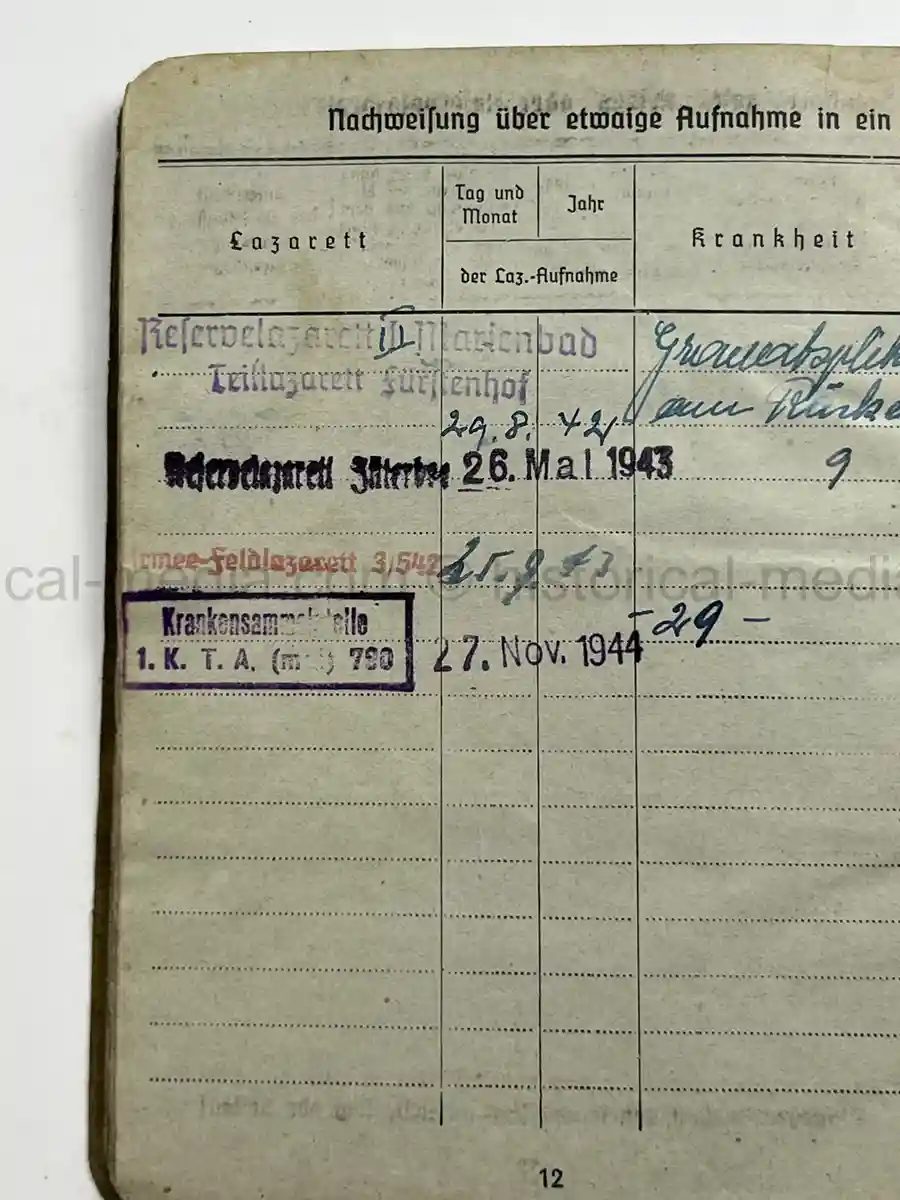 Nachweisung über etwaige Aufnahme in ein
Lazarett
Tag und Monat
Jahr
der Laz.-Aufnahme
Krankheit
Reservelazarett III Marienbad
Teillazarett Fürstenhof
Granatsplit
am Rücke
29. 8. 42
Reservelazarett Jüterbog 26. Mai 1943
9
rmee-Feldlazarett 3/542 25. 9. 43
cal-media historical-media
Krankensammelstelle
1. K. T. A. (mot) 790
27. Nov. 1944
- 29 -
12